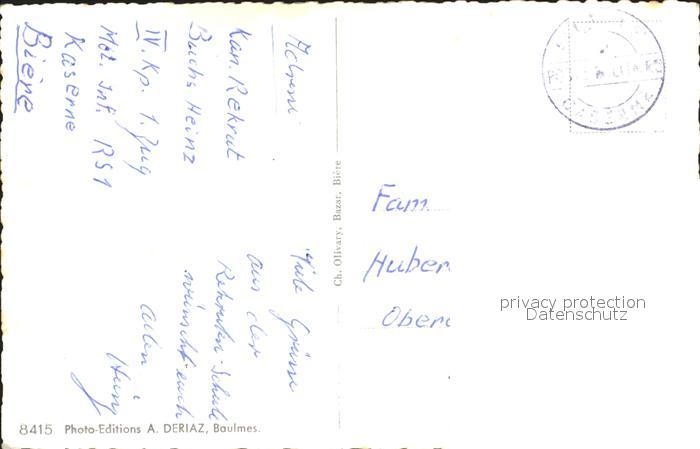 Adressi
Kan. Rekrut
Buchs Heinz
IV. Kp. 1. Zug
Mot. Inf. RS 1
Kaserne
Bière
Viele Grüsse
aus der
Rekruten-Schule
wünscht euch
allen
Ch. Olivary, Bazar, Bière
Fam.
Huber
Ober
privacy protection
Datenschutz
8415 Photo-Editions A. DERIAZ, Baulmes.